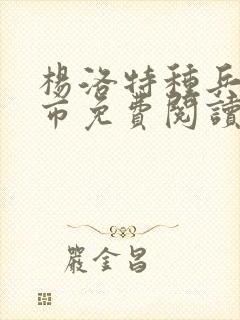 楊洛特種兵
市免費閱讀
嚴金昌